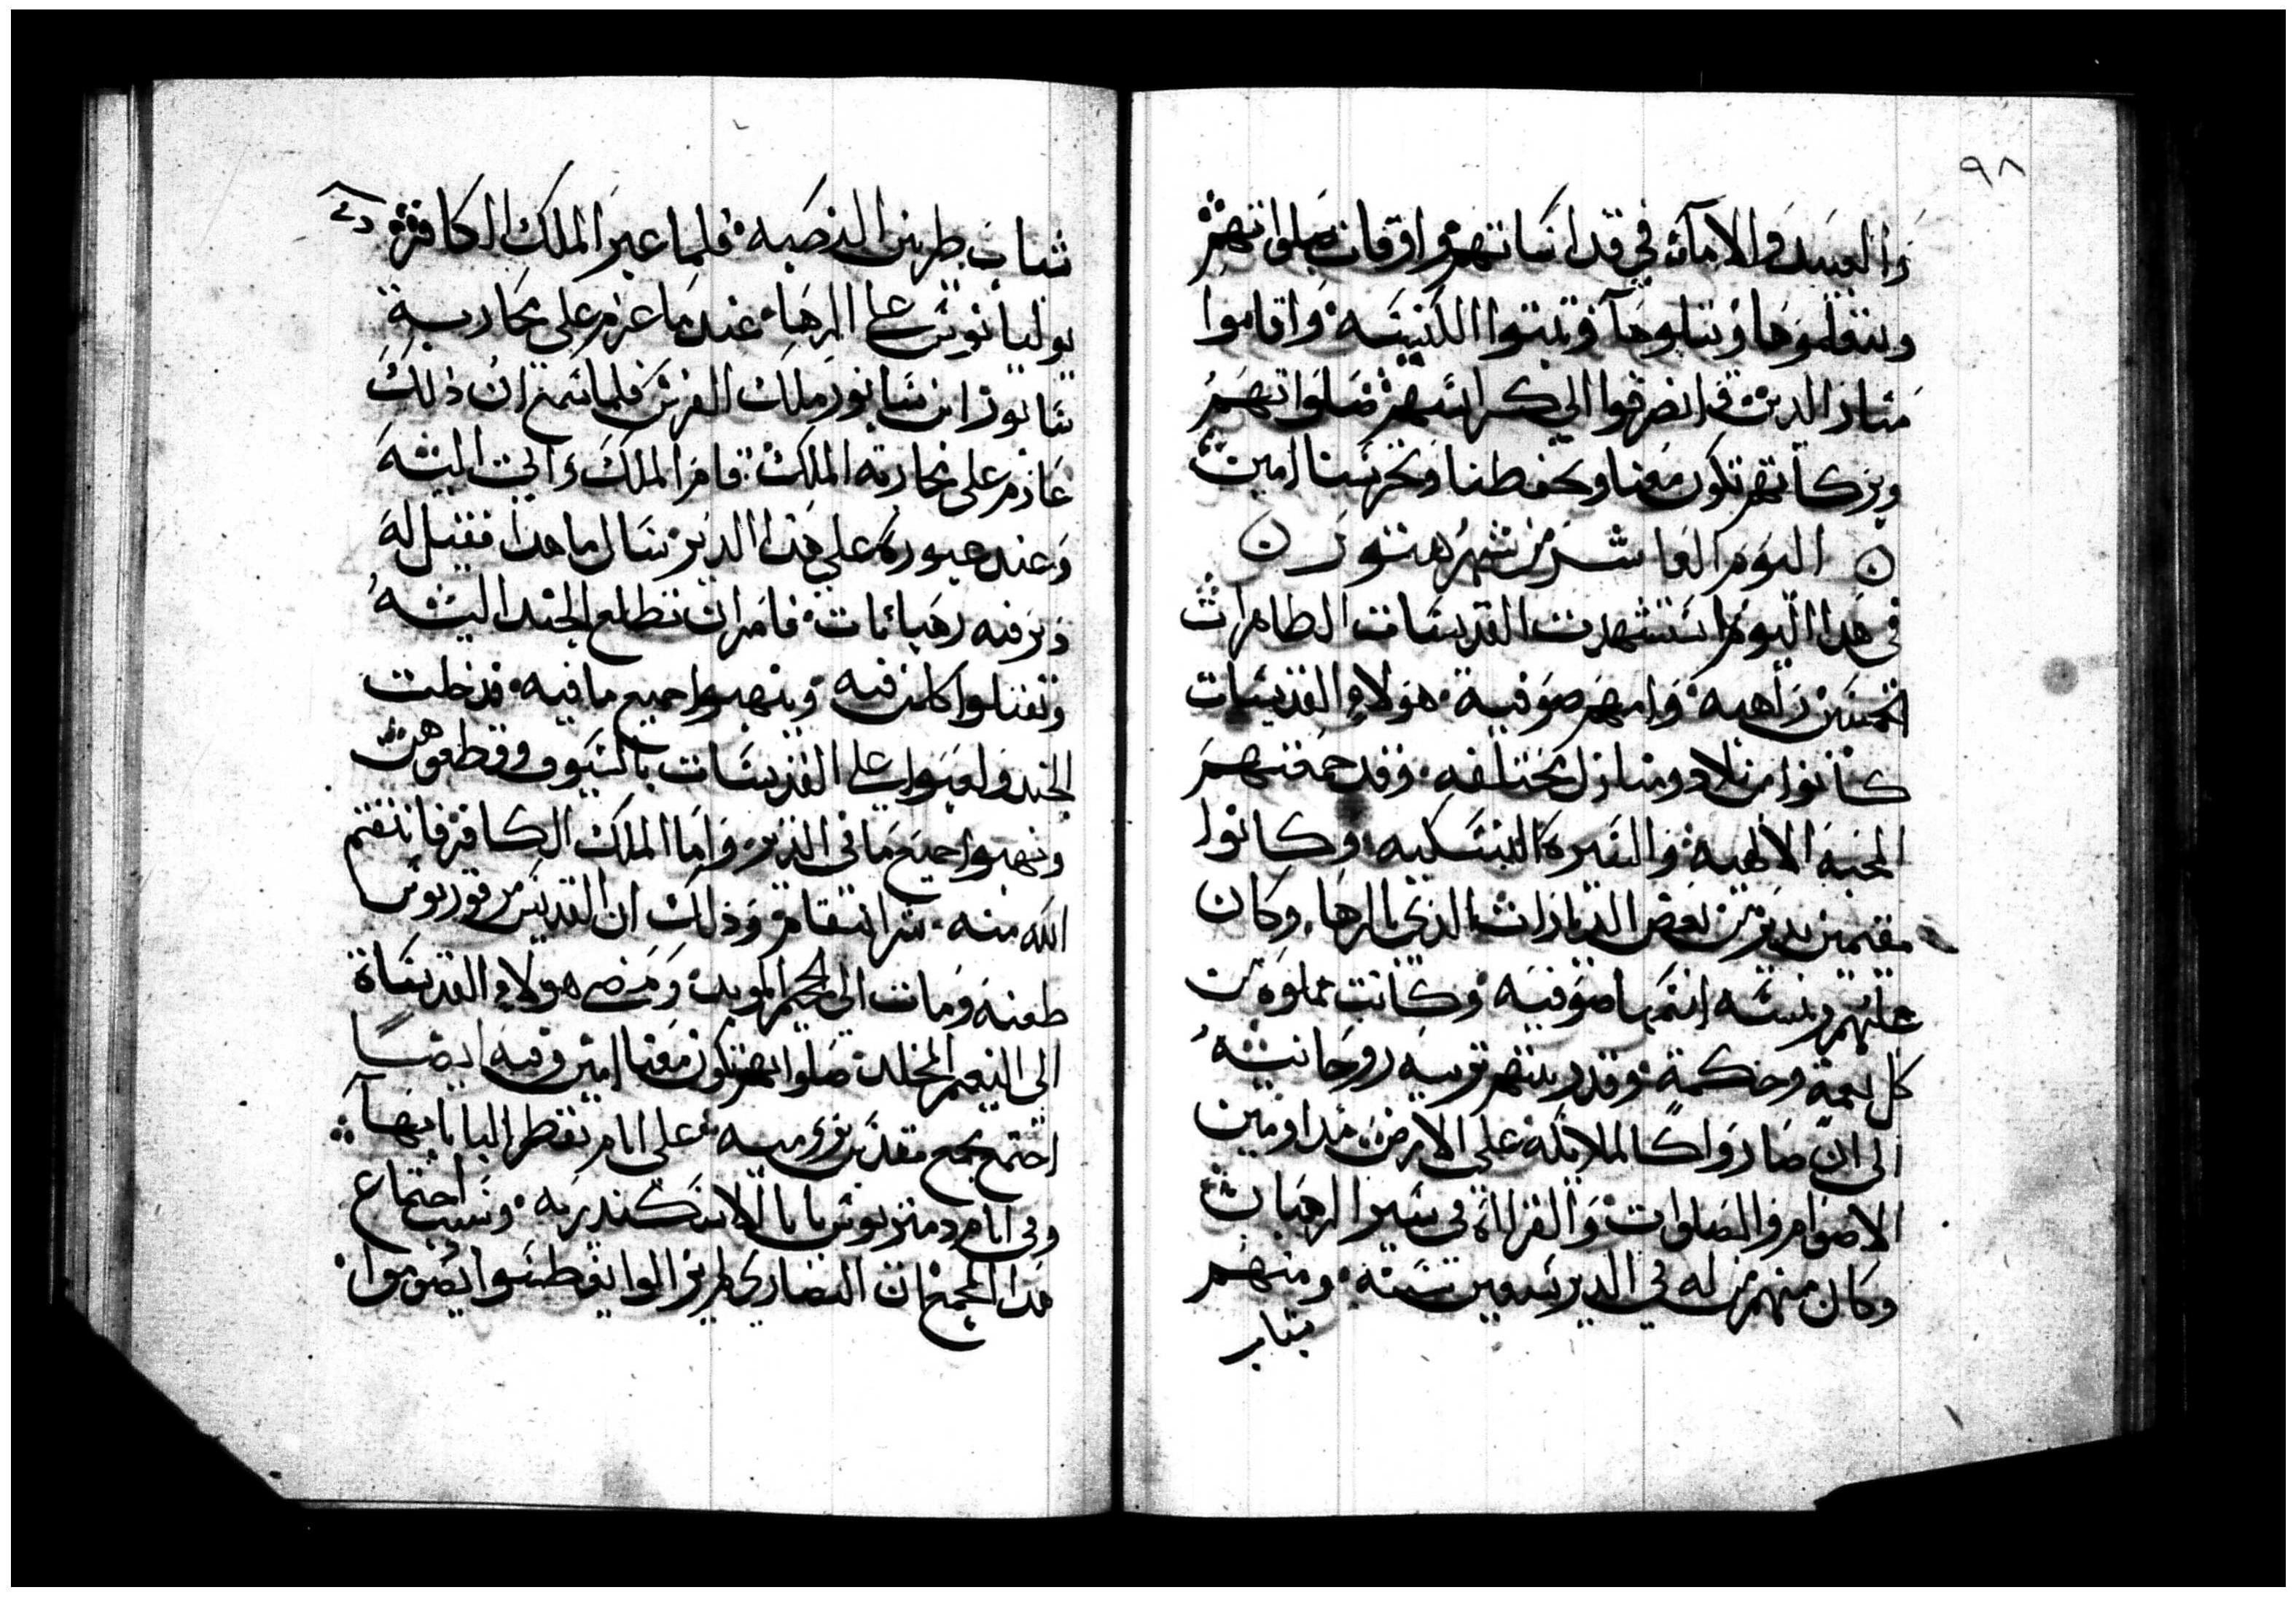 ٩٨
والعبيد والامآء في قداساتهم واوقات صلواتهم
وينقلوها ويتلوها وثبتوا الكنيسه واقاموا
منار الدين وانصرفوا الي كراسيهم صلواتهم
وبركاتهم تكون معنا وتحفظنا وتحرسنا امين
اليوم العاشر من شهر هتور
في هدا اليوم استشهدت القديسات الطاهرات
الخمسين راهبه وامهم صوفيه هولاء القديسات
كانوا من بلاد ومنازل مختلفه وقد جمعتهم
المحبه الالهيه والسيره النسكيه وكانوا
مقيمين بدير من بعض الديارات الذي بالرها وكان
عليهم ريسه اسمها صوفيه وكانت مملوه من
كل نعمة وحكمة وقد ربتهم تربيه روحانيه
الى ان صاروا كالملايكه على الارض مداومين
الاصوام والصلوات والقراأة في سير الرهبان
وكان منهم من له في الدير سبعين سنه ومنهم
شباب
شباب طريين النصبه فلما عبر الملك الكافر
يوليانوس علي الرها عندما عزم علي محاربة
سابور ابن سابور ملك الفرس فلما سمع ان ذلك
عازم على محاربه الملك قام الملك واتى اليه
وعند عبوره علي هذا الدير سال ما هدا فقيل له
دير فيه رهبانات فامر ان تطلع الجند اليه
وتقتلوا كلمن فيه وينهبوا جميع ما فيه فدخلت
الجند ولعبوا علي القديسات بالسيوف وقطعوهن
ونهبوا جميع ما في الدير واما الملك الكافر فانتقم
الله منه شر انتقام وذلك ان القديس مرقوريوس
طعنه ومات الي الجحيم الموبد ومضي هولاء القديساة
الى النعيم المخلد صلواتهم تكون معنا امين وفيه ايضا
اجتمع مجمع مقدس برومية علي ايام بقطر البابا بها
وفي ايام دمتريوس بابا الاسكندريه وسبب اجتماع
هدا المجمع ان النصارى لم يزالوا يغطسوا يصوموا